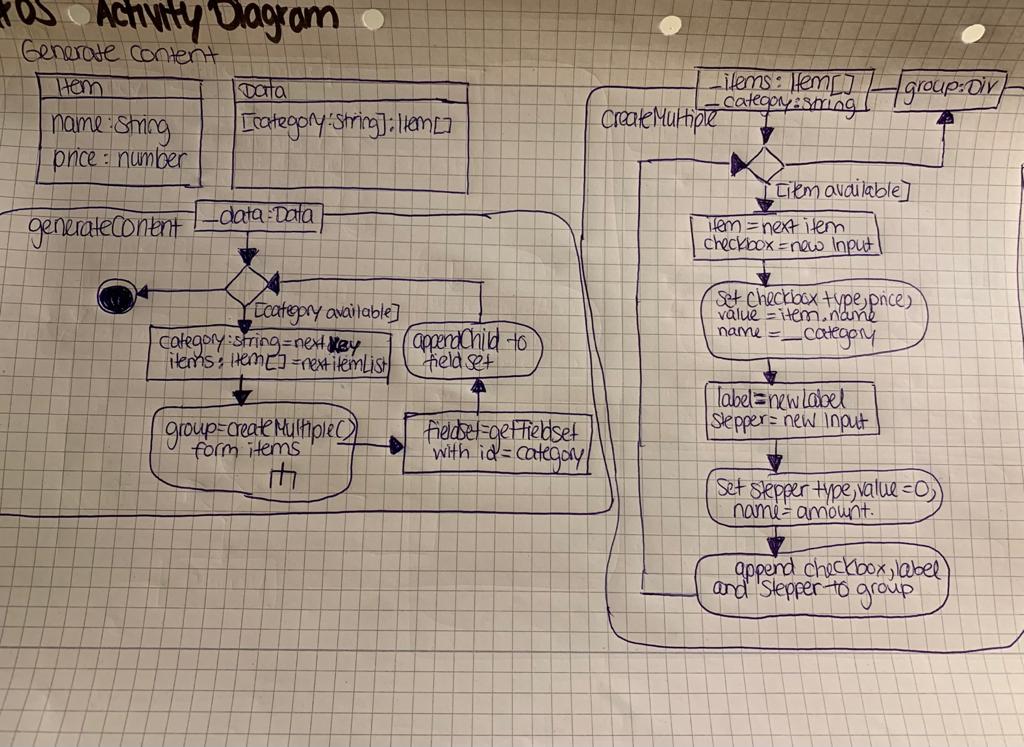 Activity Diagram
Generate Content
Item
name: string
price: number
Data
[category: string]: Item[]
generateContent
_data: Data
[category available]
category: string = next key
items: Item[] = next itemList
group = createMultiple()
form items
fieldset = getfieldset
with id = category
appendChild to
fieldset
_items: Item[]
_category: string
group: Div
createMultiple
[item available]
item = next item
checkbox = new Input
Set checkbox type, price,
value = item.name
name = _category
label = new Label
stepper = new Input
Set stepper type, value = 0,
name = amount.
append checkbox, label
and stepper to group